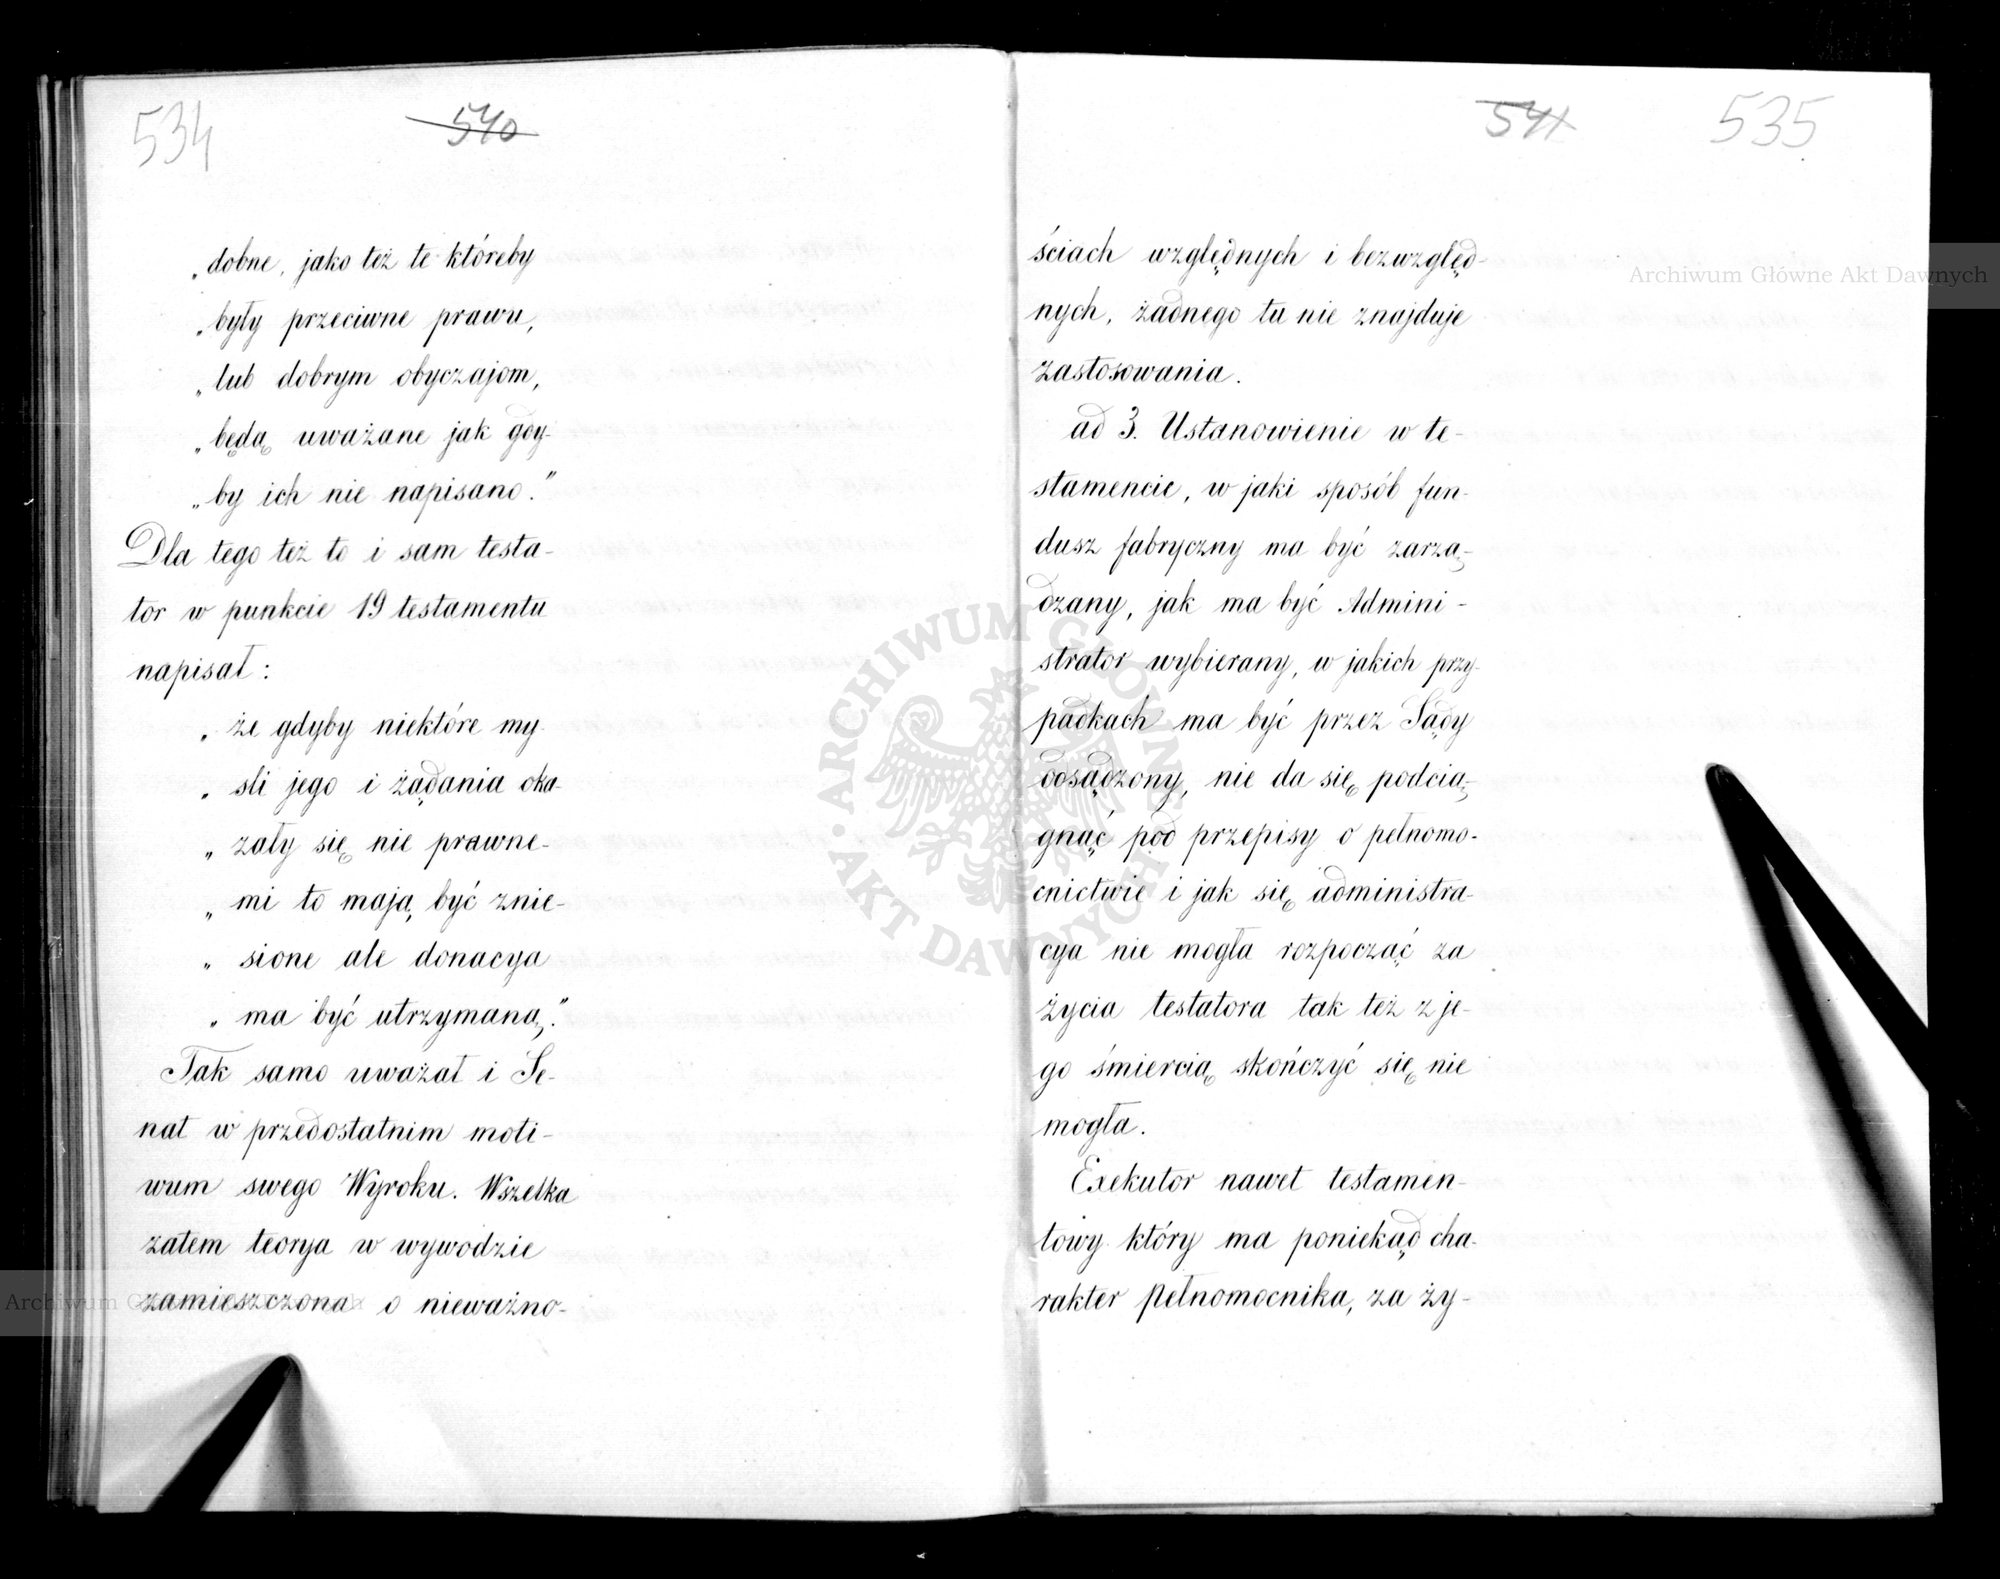 534
540
„dobne, jako też te któreby
„były przeciwne prawu,
„lub dobrym obyczajom,
„będą uważane jak gdy-
„by ich nie napisano."
Dla tego też to i sam testa-
tor w punkcie 19 testamentu
napisał:
„że gdyby niektóre my-
„sli jego i żądania oka-
„zały się nie prawne-
„mi to mają być znie-
„sione ale donacya
„ma być utrzymaną."
Tak samo uważał i Se-
nat w przedostatnim moti-
wum swego Wyroku. Wszelka
zatem teorya w wywodzie
zamieszczona o nieważno-
541
535
ściach względnych i bezwzględ-
nych, żadnego tu nie znajduje
zastosowania.
ad 3. Ustanowienie w te-
stamencie, w jaki sposób fun-
dusz fabryczny ma być zarzą-
dzany, jak ma być Admini-
strator wybierany, w jakich przy-
padkach ma być przez Sądy
dosądzony, nie da się podcią-
gnąć pod przepisy o pełnomo-
cnictwie i jak się administra-
cya nie mogła rozpocząć za
życia testatora tak też z je-
go śmiercią skończyć się nie
mogła.
Exekutor nawet testamen-
towy który ma poniekąd cha-
rakter pełnomocnika, za ży-
Archiwum Główne Akt Dawnych
ARCHIWUM GŁÓWNE
AKT DAWNYCH
Archiwum Główne Akt Dawnych